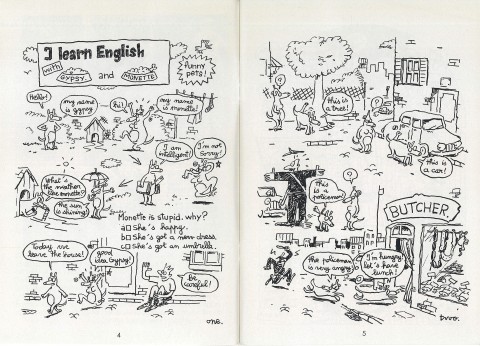 I learn English
with GYPSY and MONETTE
funny
pets!
Hello!
my name
is gypsy
hi!
my name
is monette!
I am
intelligent!
I'm not
sorry!
What's
the weather
like monette?
The sun
is shining!
Monette is stupid. why?
a She's happy.
b She's got a new dress.
c She's got an umbrella.
Today we
leave the house!
good
idea Gypsy!
be
careful!
one.
4
?
this is
a tree!
?
this is
a car!
?
This is
a
policeman
BUTCHER
the policeman
is very angry
I'm hungry
let's have
lunch!
two.
5